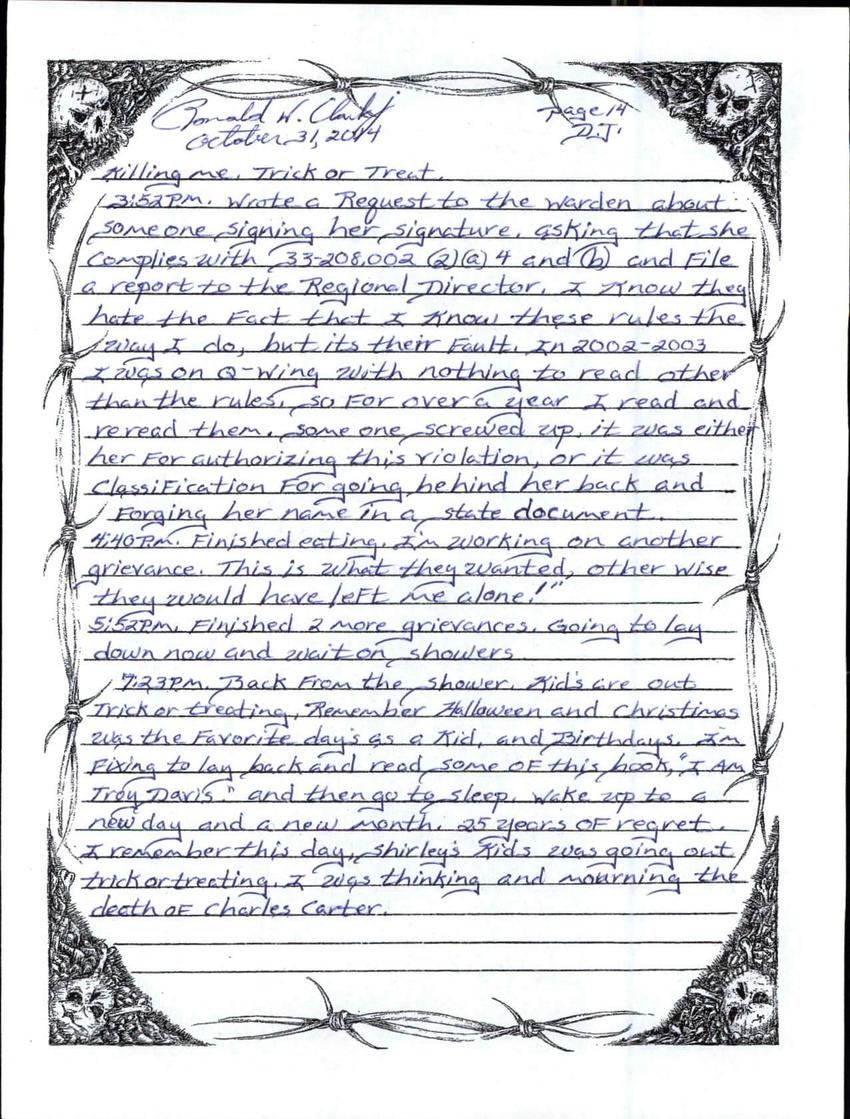 Ronald W. Clark Jr
page 14
October 31, 2014
D.J.
Killing me. Trick or Treat.
3:52PM. Wrote a Request to the warden about
someone signing her signature. asking that she
complies with 33-208.002 (2)(a) 4 and (b) and File
a report to the Regional Director. I Know they
hate the Fact that I Know these rules the
way I do, but its their Fault. In 2002-2003
I was on Q-Wing with nothing to read other
than the rules, so For over a year I read and
reread them. Some one screwed up, it was either
her For authorizing this violation, or it was
Classification For going behind her back and
Forging her name in a state document.
4:40PM. Finished eating. I'm working on another
grievance. This is what they wanted, other wise
they would have left me alone!"
5:52PM. Finished 2 more grievances. Going to lay
down now and wait on showers
7:23PM. Back From the shower. Kid's are out
Trick or treating, Remember Halloween and Christmas
was the Favorite day's as a Kid, and Birthdays. I'm
Fixing to lay back and read some OF this book, "I AM
Troy Davis." and then go to sleep. Wake up to a
new day and a new month. 25 years OF regret.
I remember this day, Shirley's Kids was going out
trick or treating. I was thinking and mourning the
death OF Charles Carter.